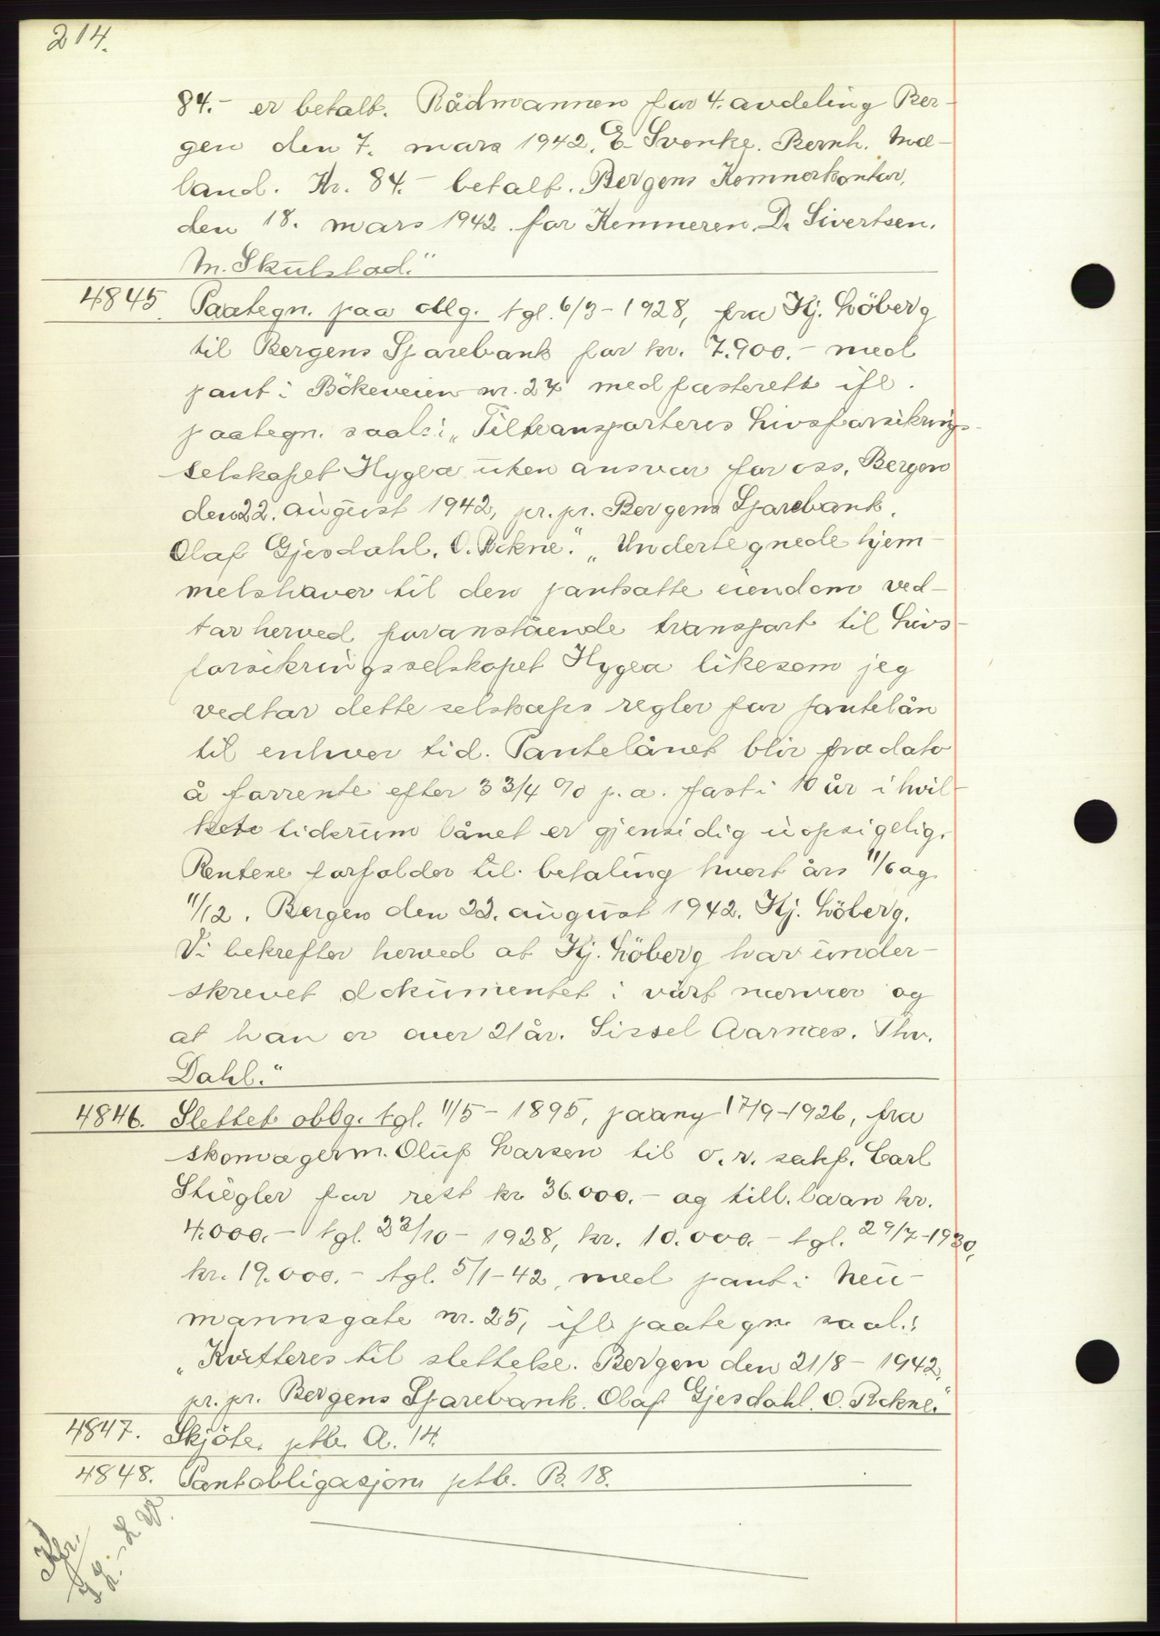 214.
84.- er betalt. Rådmannen for 4. avdeling Ber-
gen den 7. mars 1942. E. Svenke. Bernh. Mæ-
land. Kr. 84.- betalt. Bergens Kemnerkontor,
den 18. mars 1942. for Kemneren. D. Sivertsen.
M. Skulstad."
4845. Paategn. paa oblg. tgl. 6/3-1928, fra Hj. Löberg
til Bergens Sparebank for kr. 7.900.- med
pant i Bökeveien nr. 27 med festerett ifl.
paategn. saal: „Tiltransporteres Livsforsikrings-
selskapet Hygea uten ansvar for oss. Bergen
den 22. august 1942, pr. pr. Bergens Sparebank.
Olaf Gjesdahl. O. Rekne." „Undertegnede hjem-
melshaver til den pantsatte eiendom ved-
tar herved foranstående transport til Livs-
forsikringsselskapet Hygea likesom jeg
vedtar dette selskaps regler for pantelån
til enhver tid. Pantelånet blir fra dato
å forrente efter 3 3/4 % p.a. fast i 10 år i hvil-
ket tidsrum lånet er gjensidig uopsigelig.
Rentene forfalder til betaling hvert års 11/6 og
11/12. Bergen den 22. august 1942. Hj. Löberg.
Vi bekrefter herved at Hj. Löberg har under-
skrevet dokumentet i vårt nærvær og
at han er over 21 år. Sissel Aarnæs. Thv.
Dahl."
4846. Slettet oblg. tgl. 11/5-1895, paany 17/9-1926, fra
skomagerm. Oluf Larsen til o.r. sakf. Carl
Stiegler for rest kr. 36.000.- og till. laan kr.
4.000.- tgl. 22/10-1928, kr. 10.000.- tgl. 29/7-1930,
kr. 19.000.- tgl. 5/1-42, med pant i Neu-
mannsgate nr. 25, ifl. paategn. saal.:
„Kvitteres til slettelse. Bergen den 21/8-1942,
pr. pr. Bergens Sparebank. Olaf Gjesdahl. O. Rekne."
4847. Skjöte, ptb. A. 14.
4848. Pantobligasjon ptb. B. 18.